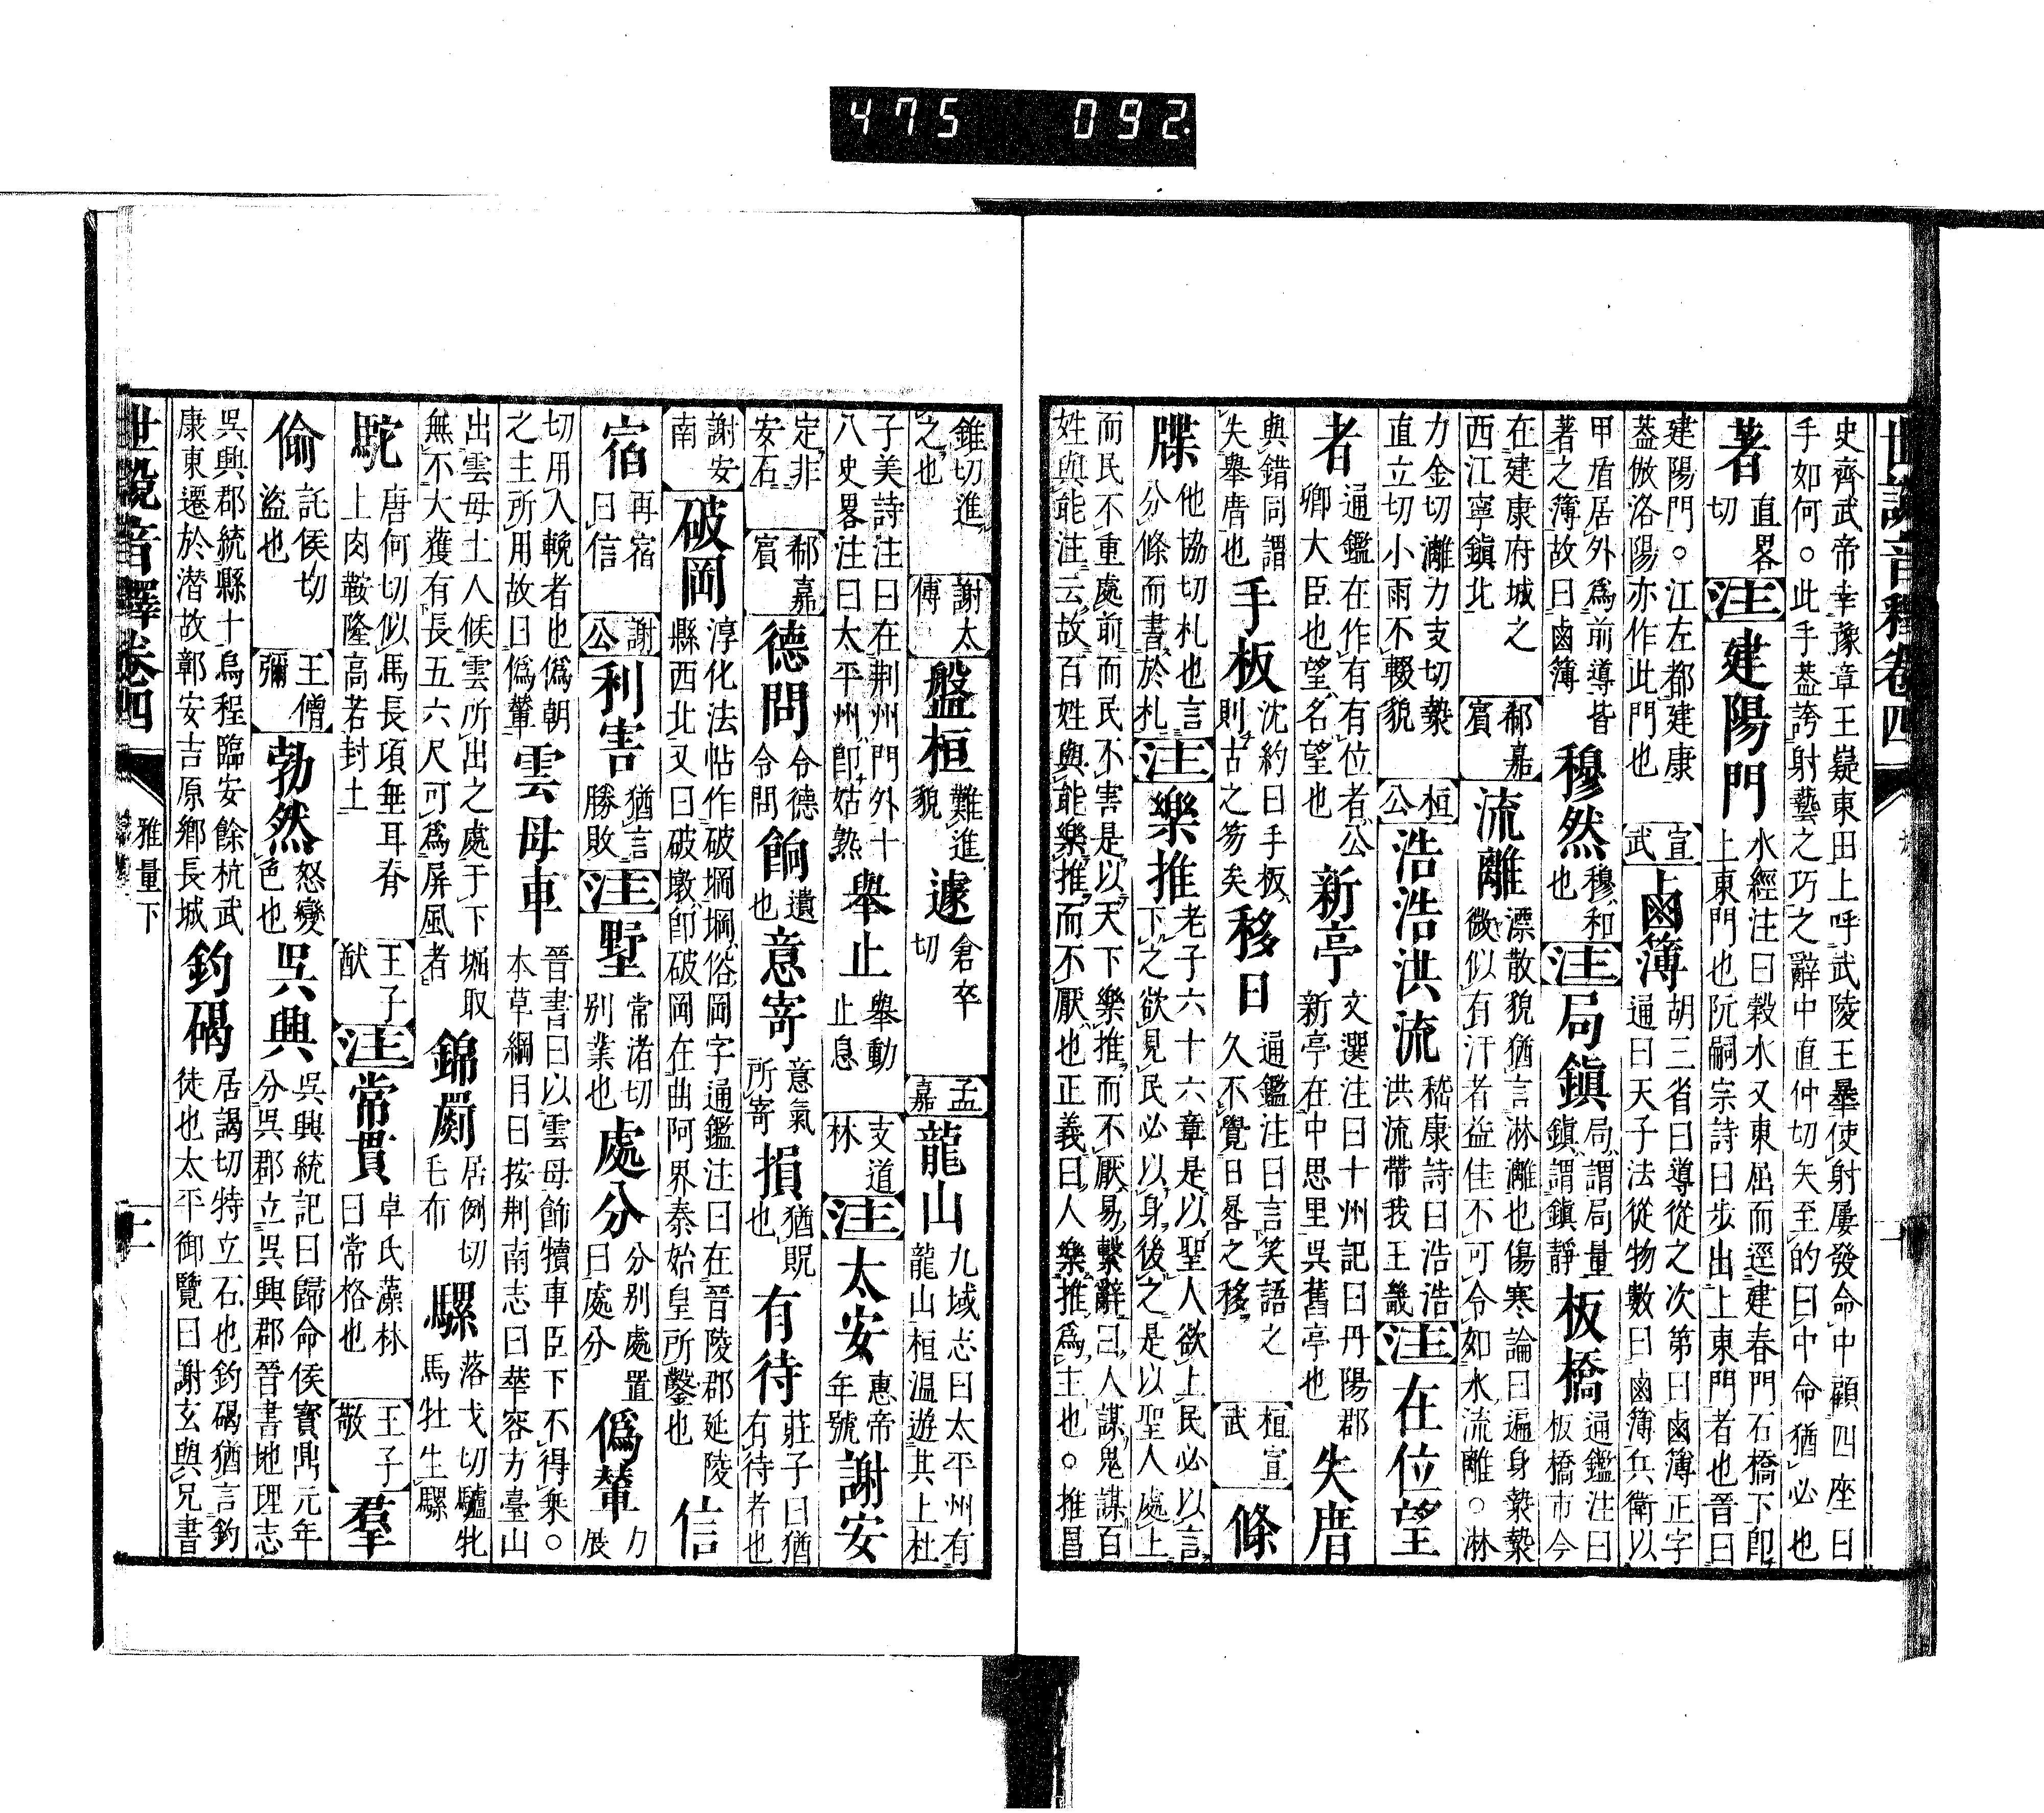 475 092.
史齊武帝幸豫章王嶷東田上呼武陵王曅使射屢發命中顧四座曰
手如何。此手葢誇射藝之巧之辭中直仲切矢至的曰中命猶必也
著 直畧切 注 建陽門 水經注曰穀水又東屈而逕建春門石橋下卽上東門也阮嗣宗詩曰步出上東門者也晉曰
建陽門。江左都建康葢倣洛陽亦作此門也 宣武 鹵簿 胡三省曰導從之次第曰鹵簿正字通曰天子法從物數曰鹵簿兵衛以
甲盾居外爲前導皆著之簿故曰鹵簿 穆然 穆和也 注 局鎮 局謂局量鎮謂鎮靜 板橋 通鑑注曰板橋市今
在建康府城之西江寧鎮北 郗嘉賓 流離 漂散貌猶言淋漓也傷寒論曰遍身漐漐微似有汗者益佳不可令如水流離。淋
力金切漓力支切漐直立切小雨不輟貌 桓公 浩浩洪流 嵇康詩曰浩浩洪流帶我王畿 注 在位望
者 通鑑在作有有位者公卿大臣也望名望也 新亭 文選注曰十州記曰丹陽郡新亭在中思里吳舊亭也 失厝
與錯同謂失舉厝也 手板 沈約曰手板則古之笏矣 移日 通鑑注曰言笑語之久不覺日晷之移 桓宣武 條
牒 他協切札也言分條而書於札 注 樂推 老子六十六章是以聖人欲上民必以言下之欲見民必以身後之是以聖人處上
而民不重處前而民不害是以天下樂推而不厭易繫辭曰人謀鬼謀百姓與能注云故百姓與能樂推而不厭也正義曰人樂推爲主也。推昌
錐切進之也 謝太傅 盤桓 難進貌 遽 倉卒切 孟嘉 龍山 九域志曰太平州有龍山桓温遊其上杜
子美詩注曰在荆州門外十八史畧注曰太平州卽姑熟 舉止 舉動止息 支道林 注 太安 惠帝年號 謝安
定非安石 郗嘉賓 德問 令德令問 餉 遺也 意寄 意氣所寄 損 猶貺也 有待 莊子曰猶有待者也
謝安南 破岡 淳化法帖作破堈堈俗岡字通鑑注曰在晉陵郡延陵縣西北又曰破墩卽破岡在曲阿界秦始皇所鑿也 信
宿 再宿曰信 謝公 利害 猶言勝敗 注 墅 常渚切别業也 處分 分别處置曰處分 僞輦 力展
切用入輓者也僞朝之主所用故曰僞輦 雲母車 晉書曰以雲母飾犢車臣下不得乘。本草綱目曰按荆南志曰華容方臺山
出雲母土人候雲所出之處于下堀取無不大獲有長五六尺可爲屏風者 錦罽 居例切毛布 騾 落戈切驢牝馬牡生騾
駝 唐何切似馬長項垂耳脊上肉鞍隆高若封土 王子猷 注 常貫 卓氏藻林曰常格也 王子敬 羣
偷 託侯切盜也 王僧彌 勃然 怒變色也 吳興 吳興統記曰歸命侯寶鼎元年分吳郡立吳興郡晉書地理志
吳興郡統縣十烏程臨安餘杭武康東遷於潛故鄣安吉原鄉長城 釣碣 居謁切特立石也釣碣猶言釣徒也太平御覽曰謝玄與兄書
世說音釋卷四 雅量下 二